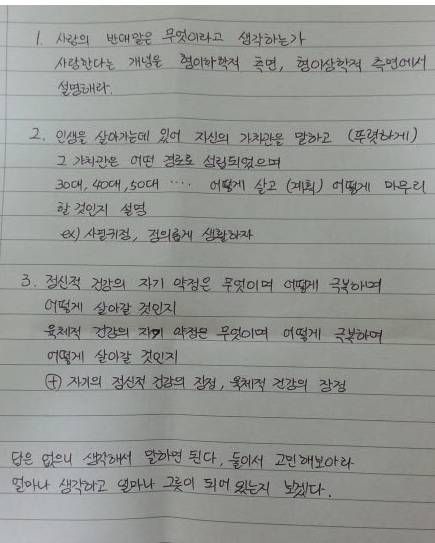 1. 사랑의 반대말은 무엇이라고 생각하는가
사랑한다는 개념을 형이하학적 측면, 형이상학적 측면에서
설명해라.
2. 인생을 살아가는데 있어 자신의 가치관을 말하고 (뚜렷하게)
그 가치관은 어떤 경로로 성립되었으며
30대, 40대, 50대 ···· 어떻게 살고 (계획) 어떻게 마무리
할 것인지 설명
ex) 사필귀정, 정의롭게 생활하자
3. 정신적 건강의 자기 약점은 무엇이며 어떻게 극복하며
어떻게 살아갈 것인지
육체적 건강의 자기 약점은 무엇이며 어떻게 극복하며
어떻게 살아갈 것인지
⊕ 자기의 정신적 건강의 장점, 육체적 건강의 장점
답은 없으니 생각해서 말하면 된다, 둘이서 고민해보아라
얼마나 생각하고 얼마나 그릇이 되어 있는지 보겠다.